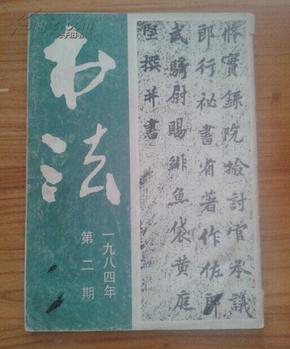 书法
一九八四年
第二期
修实录院检讨官承議
郎行祕書省著作佐郎
武騎尉賜緋魚袋黄庭
堅撰并書